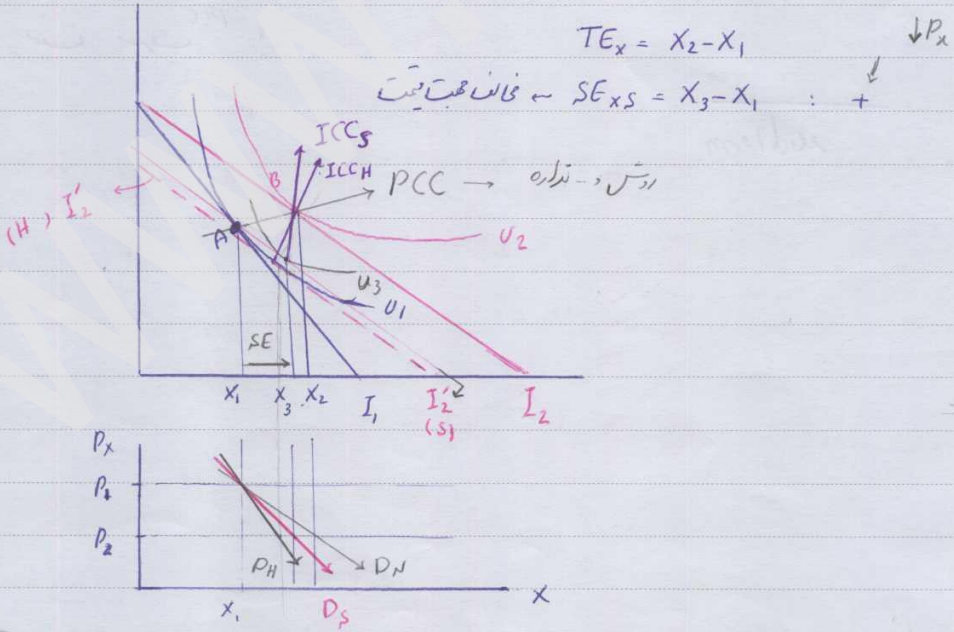 TEx = X2 - X1
↓Px
مخالف جهت قیمت ← SExs = X3 - X1 : +
ICCs
ICCH
B
PCC →
روش
(H) I'2
A
U2
U3
U1
SE
X1 X3 X2 I1 I'2 I2
(s)
Px
P1
P2
DH DN
X1 Ds X